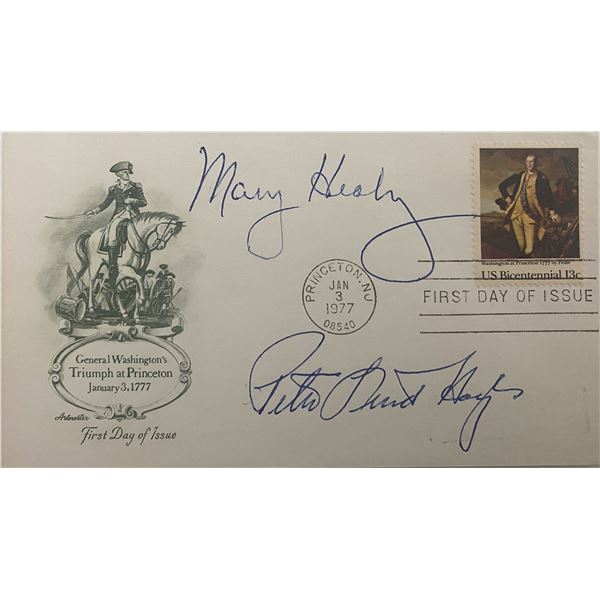 Mary Healy
Washington at Princeton 1777 by Peale
US Bicentennial 13c
PRINCETON, NJ
JAN
3
1977
08540
FIRST DAY OF ISSUE
General Washington's
Triumph at Princeton
January 3, 1777
Artmaster
First Day of Issue
Peter Lind Hayes